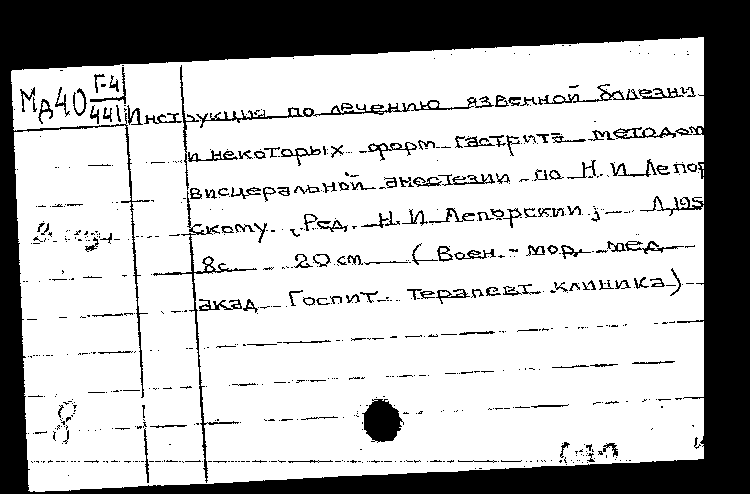 Мд40 Г-4
441
Инструкция по лечению язвенной болезни
и некоторых форм гастрита методом
висцеральной анестезии по Н.И. Лепор
скому. [Ред. Н.И. Лепорский; Л, 195
8с. 20 см. (Воен.-мор. мед.
акад. Госпит. терапевт. клиника)
8